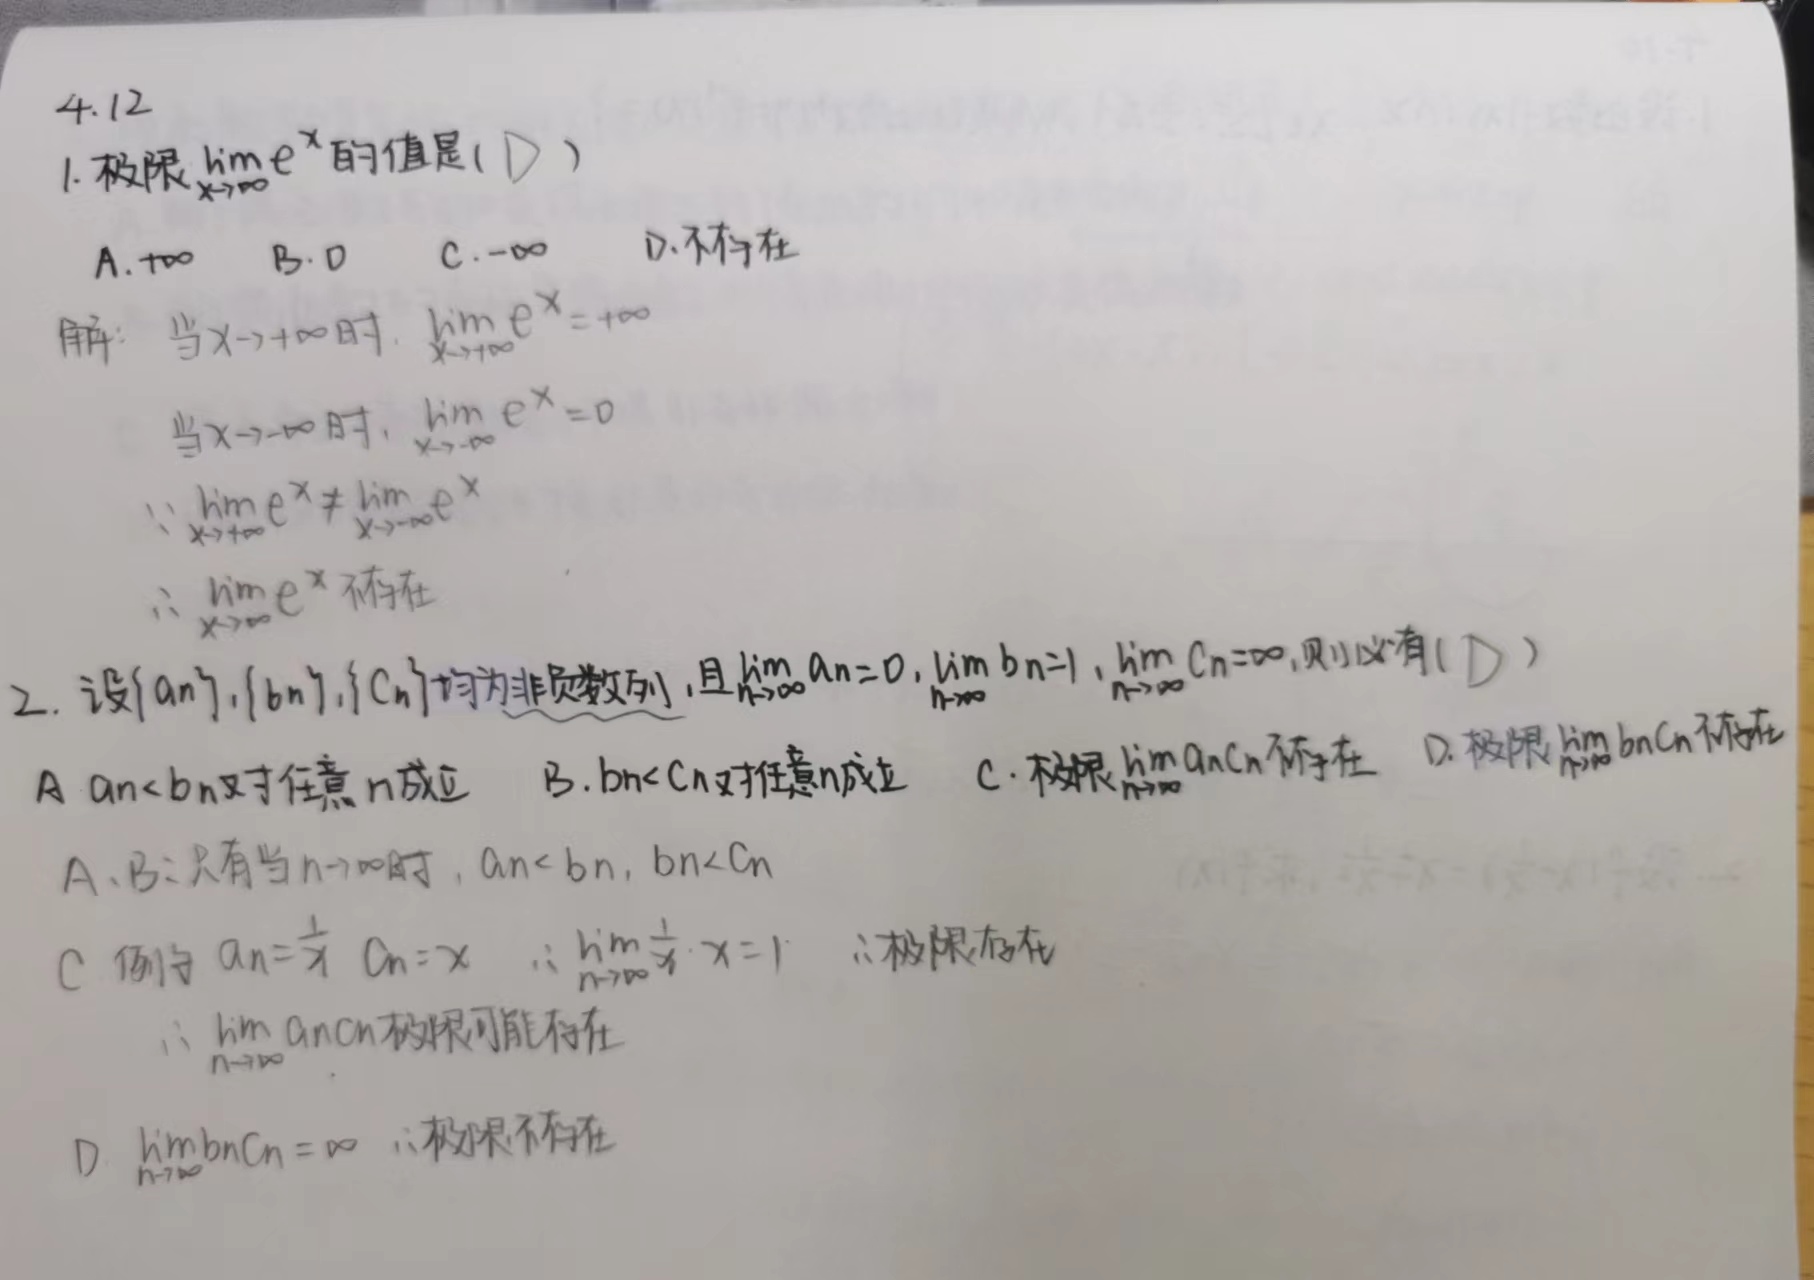 4.12
1. 极限 lim x→∞ e^x 的值是( D )
A. +∞ B. 0 C. -∞ D. 不存在
解: 当x→+∞时, lim x→+∞ e^x = +∞
当x→-∞时, lim x→-∞ e^x = 0
∵ lim x→+∞ e^x ≠ lim x→-∞ e^x
∴ lim x→∞ e^x 不存在
2. 设{an},{bn},{Cn}均为非负数列,且 lim n→∞ an=0, lim n→∞ bn=1, lim n→∞ Cn=∞,则必有( D )
A an<bn对任意n成立 B. bn<Cn对任意n成立 C. 极限 lim n→∞ anCn 不存在 D. 极限 lim n→∞ bnCn 不存在
A、B: 只有当n→∞时, an<bn, bn<Cn
C 例 an=1/x Cn=x ∴ lim n→∞ 1/x·x=1 ∴极限存在
∴ lim n→∞ anCn 极限可能存在
D lim n→∞ bnCn=∞ ∴极限不存在